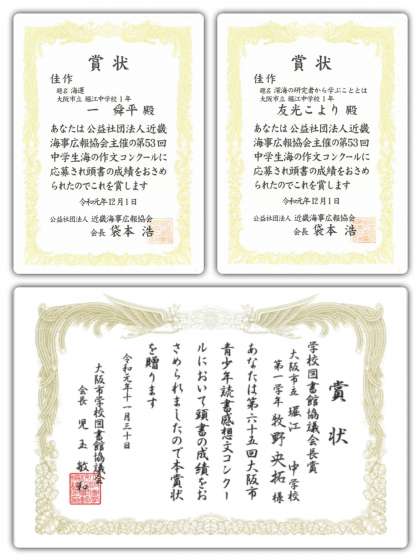 賞状
佳作
題名 海運
大阪市立 堀江中学校1年
一 舜平 殿
あなたは公益社団法人近畿
海事広報協会主催の第53回
中学生海の作文コンクールに
応募され頭書の成績をおさめ
られたのでこれを賞します
令和元年12月1日
公益社団法人 近畿海事広報協会
会長 袋本 浩
賞状
佳作
題名 深海の研究者から学ぶこととは
大阪市立 堀江中学校1年
友光こより 殿
あなたは公益社団法人近畿
海事広報協会主催の第53回
中学生海の作文コンクールに
応募され頭書の成績をおさめ
られたのでこれを賞します
令和元年12月1日
公益社団法人 近畿海事広報協会
会長 袋本 浩
賞状
学校図書館協議会長賞
大阪市立 堀江 中学校
第一学年 牧野 央拓 様
あなたは第六十五回大阪市
青少年読書感想文コンクー
ルにおいて頭書の成績をお
さめられましたので本賞状
を贈ります
令和元年十一月三十日
大阪市学校図書館協議会
会長 児玉 敏和